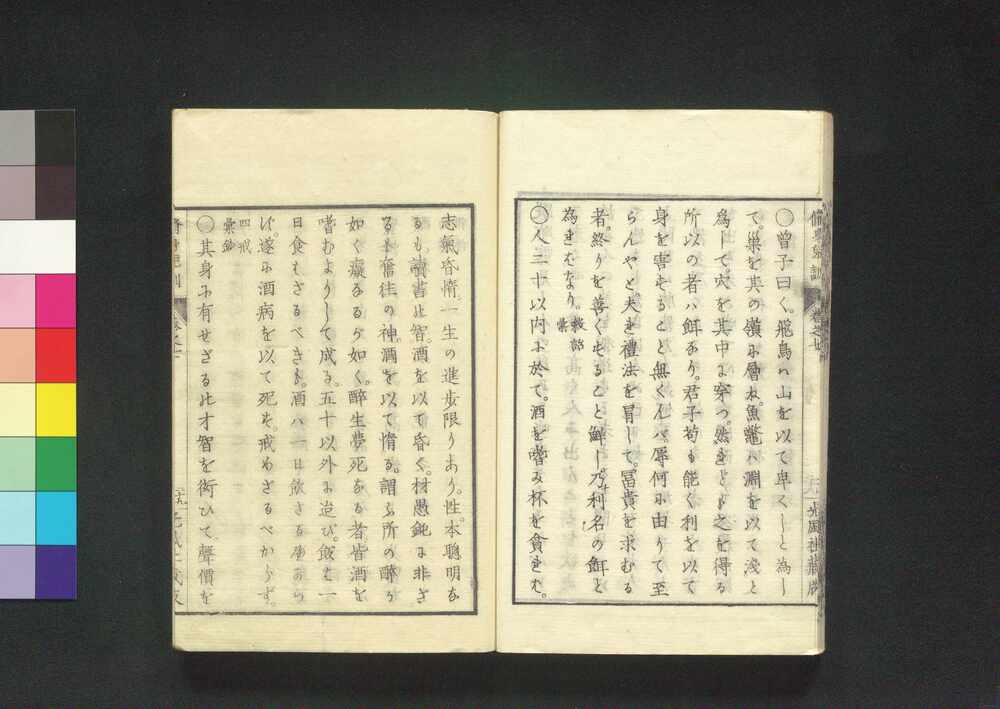 ○曾子曰く。飛鳥ハ山を以て卑くしと為し
て。巣を其の嶺に層ね。魚鼈ハ淵を以て淺と
為して穴を其中に穿つ。然きども之を得る
所以の者ハ餌なり。君子苟も能く利を以て
身を害せること無くんバ。辱何に由りて至
らんやと。夫を禮法を冒して。冨貴を求むる
者。終りを善くもること鮮し。乃利名の餌と
為きむなり。
○人三十以内に於て。酒を嗜み杯を貪せむ。
志氣昏惰。一生の進歩限りあり。性本聰明な
るも讀書此智。酒を以て昏く。材愚鈍に非ざ
る
如く癡なるが如く。醉生夢死なる者。皆酒を
嗜むよりして成る。五十以外に迨び。飯ハ一
日食もざるべきも。酒ハ一日飲ざる
バ。遂に酒病を以て死を。戒めざるべからず。
四戒
彙鈔
○其身に有せざる此才智を衒ひて聲價を